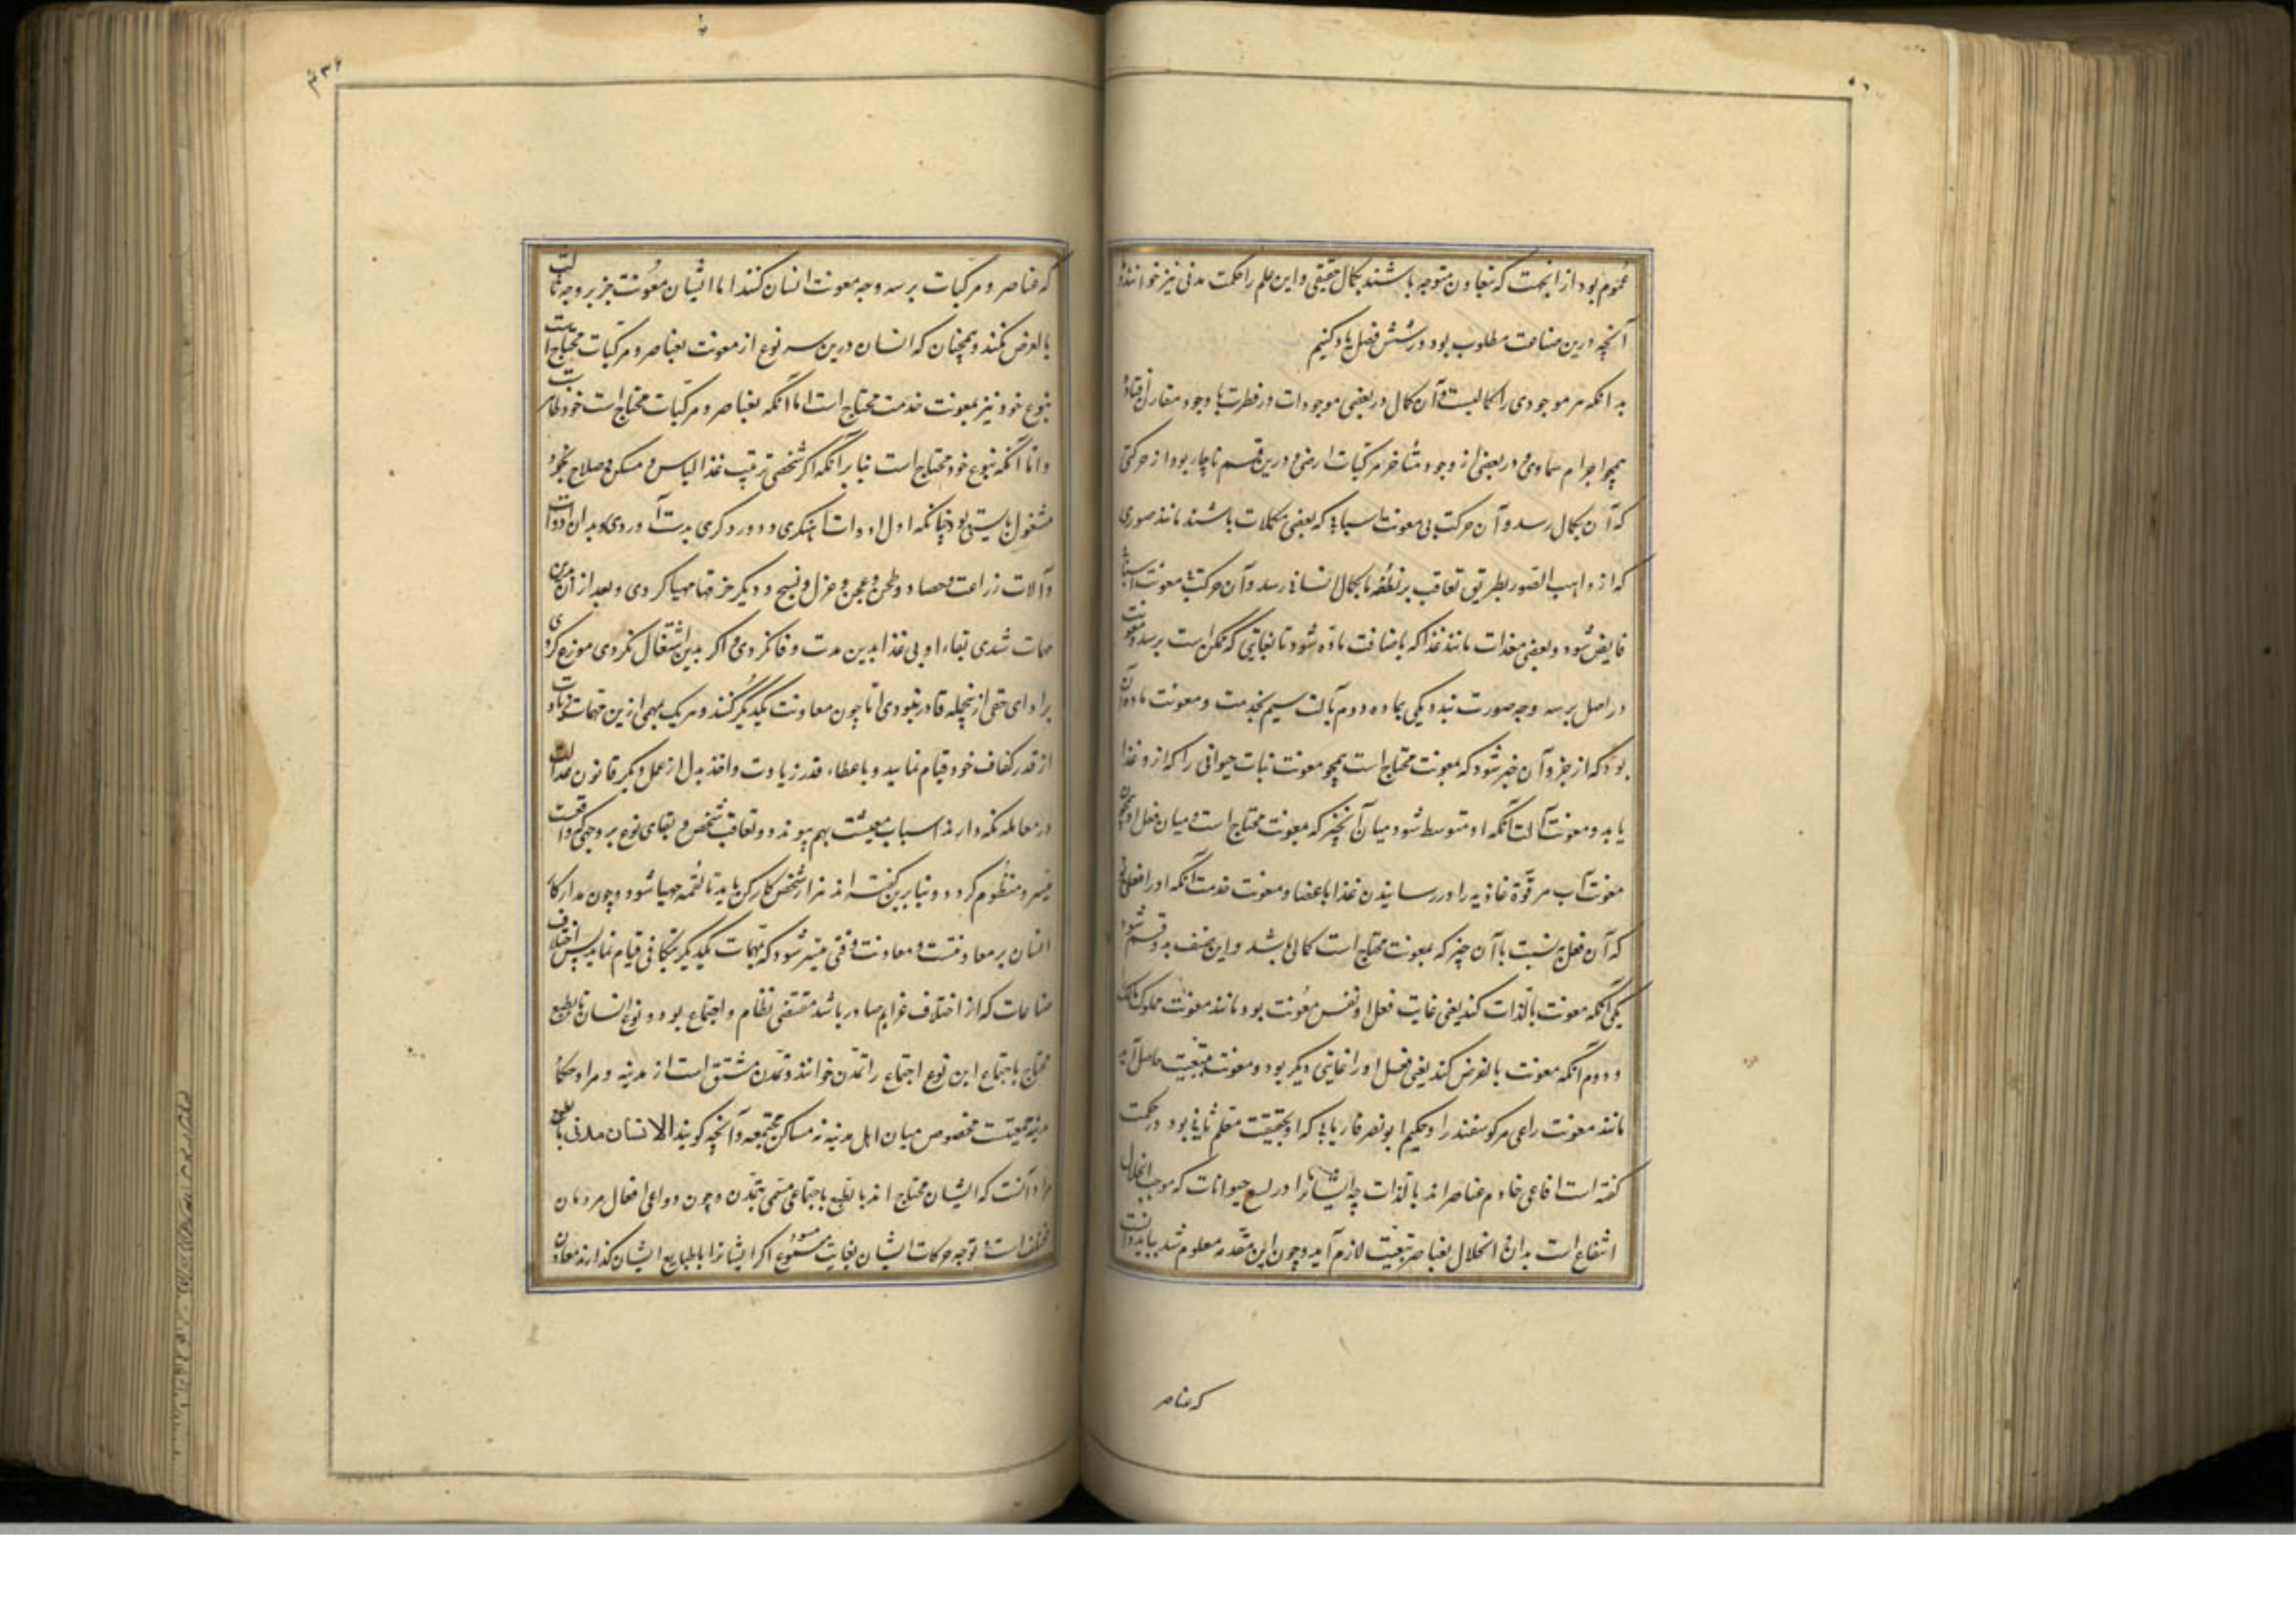 عموم بود از انجهت که بتعاون متوجه باشند بکمال حقیقی و این علم را حکمت مدنی نیز خوانند و
آنچه درین صناعت مطلوب بود در شش فصل یاد کنیم
بدانکه هر موجودی را کمالیست و آن کمال در بعضی موجودات در فطرت با وجود مقارن افتاده
همچو اجرام سماوی و در بعضی از وجود متأخر مرکبات ارضی و درین قسم ناچار بود از حرکتی
که آن بکمال رسد و آن حرکت بی معونت اسبابی که بعضی مکملات باشند مانند صوری
که از واهب الصور بطریق تعاقب بر نطفه تا بکمال انسانی رسد و آن حرکت بی معونت اسبابی
فایض شود و بعضی معدات مانند غذا که باضافت ماده شود تا بغایتی که ممکن است برسد و معونت
در اصل بر سه وجه صورت بندد یکی بماده دوم بآلت سیم بخدمت و معونت ماده آن
بود که از جزو آن خبر شود که بمعونت محتاج است همچو معونت نبات حیوانی را که از و غذا
یابد و معونت آلت آنکه او متوسط شود میان آنچیز که بمعونت محتاج است و میان فعل او همچون
معونت آب مر قوّة غاذیه را در رسانیدن غذا باعضا و معونت خدمت آنکه او را فعلی بود
که آن فعل به نسبت با آن چیز که بمعونت محتاج است کمالی باشد و این صنف بدو قسم شود
یکی آنکه معونت بالذات کند یعنی غایت فعل او نفس معونت بود مانند معونت مملوک مالک
و دوم آنکه معونت بالعرض کند یعنی فعل او را غایتی دیگر بود و معونت بتبعیت حاصل آید
مانند معونت راعی مر کوسفند را و حکیم ابو نصر فاریابی که او بحقیقت معلم ثانی بود در حکمت
کفته است افاعی خادم عناصر اند بالذات چه ایشانرا در لسع حیوانات که موجب انحلال
انتفاع است بدان انحلال بعناصر تبعیت لازم آید و چون این مقدمه معلوم شد بباید دانست
که عناصر
که عناصر و مرکبات بر سه وجه معونت انسان کنند اما ایشان معونت جز بر وجه ثالث
بالعرض نکنند و همچنان که انسان درین سه نوع از معونت بعناصر و مرکبات محتاج است
بنوع خود نیز بمعونت خدمت محتاج است اما آنکه بعناصر و مرکبات محتاج است خود ظاهر است
و اما آنکه بنوع خود محتاج است بنا بر آنکه اکر شخصی ترتیب غذا و لباس و مسکن و صلاح بخود
مشغول بایستی بود چنانکه اول ادوات آهنکری و درودکری بدست آوردی و بدان ادوات
و آلات زراعت و حصاد و طحن و عجن و غزل و نسج و دیکر حرفتها مهیا کردی و بعد ازان بدین
مهمات شدی بقاء او بی غذا بدین مدت وفا نکردی و اکر بدین اشتغال نکردی موزع کردی
بر ادای حقی از ینجمله قادر نبودی اما چون معاونت یکدیکر کنند و هر یک بمهمی ازین مهمات زیادت
از قدر کفاف خود قیام نمایند و باعطاء قدر زیادت و اخذ بدل از عمل دیکر قانون عدالت
در معامله نکه دارند اسباب معیشت بهم پیوندد و تعاقب شخص و بقای نوع بر وجهی که واقعست
میسر و منظوم کردد و بنا برین کفته اند هزار شخص کار کن باید تا لقمه مهیا شود و چون مدار کار
انسان بر معاونتست و معاونت وقتی میسر شود که بمهمات یکدیکر بتکافی قیام نمایند پس اختلاف
صناعات که از اختلاف عزایم صادر باشد مقتضی نظام و اجتماع بود و نوع انسان بالطبع
محتاج باجتماع این نوع اجتماع را تمدن خوانند و تمدن مشتق است از مدینه و مراد حکما
مدینه جمعیت مخصوص میان اهل مدینه نه مساکن مجتمعه و آنچه کویند الانسان مدنی بالطبع
مراد آنست که ایشان محتاج اند بالطبع باجتماعی مسمی بتمدن و چون دواعی افعال مردمان
مختلف است و توجه حرکات ایشان بغایت متنوع اکر ایشانرا با طبایع ایشان کذارند معاون